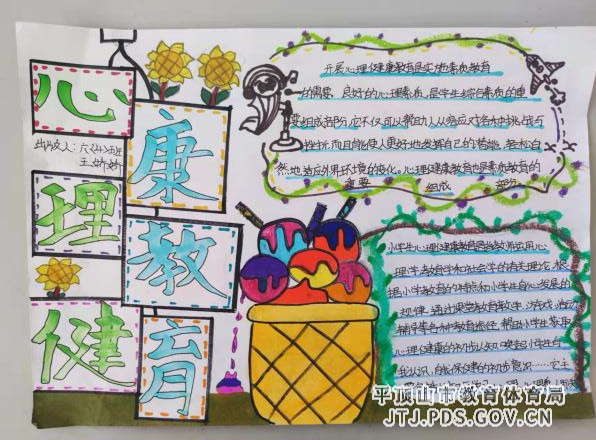 心
康
出版人：六(4)班
理
教
健
育
开展心理健康教育是实施素质教育
的需要，良好的心理素质，是学生综合素质的重
要组成部份，它不仅可以帮助人从容应对各种挑战与
挫折，而且能使人更好地发挥自己的潜能，轻松自
然地适应外界环境的变化。心理健康教育也是素质教育的
重要 组成 部分。
小学生心理健康教育是指教师运用心
理学、教育学和社会学的有关理论，根
据小学教育的特点和小学生身心发展的
规律，通过课堂教育教学、游戏、活动
辅导等各种教育途径，帮助小学生获取
心理健康的初步认知，唤起小学生自
我认识，自我保健的初步意识……它主
平顶山市教育体育局
JTJ.PDS.GOV.CN